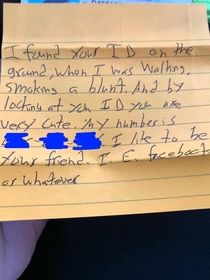 I found your ID on the
ground, when I was walking,
smoking a blunt. And by
looking at you ID you are
very cute. my number is
I like to be
your friend. I. E. facebook
or whatever